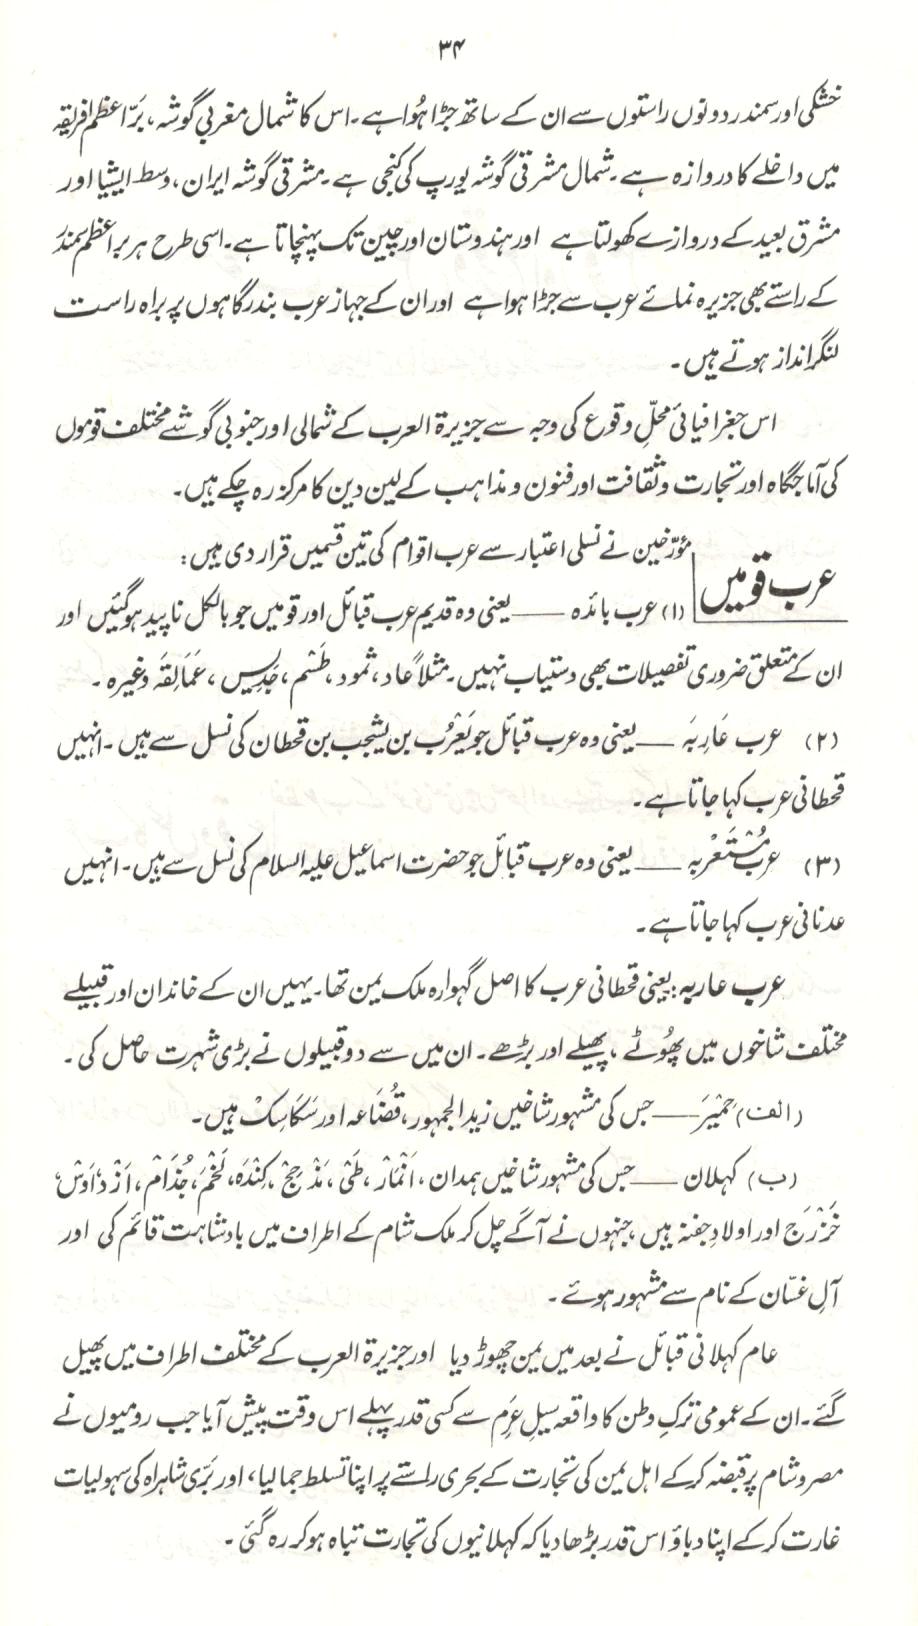 ۳۴
خشکی اور سمندر دونوں راستوں سے ان کے ساتھ جڑا ہُوا ہے۔ اس کا شمال مغربی گوشہ، برّ اعظم افریقہ
میں داخلے کا دروازہ ہے۔ شمال مشرقی گوشہ یورپ کی کنجی ہے۔ مشرقی گوشہ ایران، وسط ایشیا اور
مشرق بعید کے دروازے کھولتا ہے اور ہندوستان اور چین تک پہنچاتا ہے۔ اسی طرح ہر بر اعظم سمندر
کے راستے بھی جزیرہ نمائے عرب سے جڑا ہوا ہے اور ان کے جہاز عرب بندرگاہوں پر براہ راست
لنگر انداز ہوتے ہیں۔
اس جغرافیائی محلِّ وقوع کی وجہ سے جزیرۃ العرب کے شمالی اور جنوبی گوشے مختلف قوموں
کی آماجگاہ اور تجارت و ثقافت اور فنون و مذاہب کے لین دین کا مرکز رہ چکے ہیں۔
عرب قومیں
مؤرّخین نے نسلی اعتبار سے عرب اقوام کی تین قسمیں قرار دی ہیں:
(۱) عرب بائدہ — یعنی وہ قدیم عرب قبائل اور قومیں جو بالکل ناپید ہو گئیں اور
ان کے متعلق ضروری تفصیلات بھی دستیاب نہیں۔ مثلاً عاد، ثمود، طَسْم، جَدِیس، عَمَالِقَہ وغیرہ۔
(۲) عرب عَارِبَہ — یعنی وہ عرب قبائل جو یَعْرُب بن یشجب بن قحطان کی نسل سے ہیں۔ انہیں
قحطانی عرب کہا جاتا ہے۔
(۳) عرب مُسْتَعْرِبہ — یعنی وہ عرب قبائل جو حضرت اسماعیل علیہ السلام کی نسل سے ہیں۔ انہیں
عدنانی عرب کہا جاتا ہے۔
عرب عاربہ: یعنی قحطانی عرب کا اصل گہوارہ ملک یمن تھا۔ یہیں ان کے خاندان اور قبیلے
مختلف شاخوں میں پھُوٹے، پھیلے اور بڑھے۔ ان میں سے دو قبیلوں نے بڑی شہرت حاصل کی۔
(الف) حِمْیَرَ — جس کی مشہور شاخیں زید الجمہور، قُضَاعہ اور سَکَاسِکْ ہیں۔
(ب) کہلان — جس کی مشہور شاخیں ہمدان، اَنْمَارْ، طَیْ، مَذْحِجْ، کِنْدَہ، لَخْم، جُذَامْ، اَزْد، اَوْسْ،
خَزْرَج اور اولادِ جفنہ ہیں، جنہوں نے آگے چل کر ملک شام کے اطراف میں بادشاہت قائم کی اور
آلِ غسّان کے نام سے مشہور ہوئے۔
عام کہلانی قبائل نے بعد میں یمن چھوڑ دیا اور جزیرۃ العرب کے مختلف اطراف میں پھیل
گئے۔ ان کے عمومی ترکِ وطن کا واقعہ سیلِ عَرِم سے کسی قدر پہلے اس وقت پیش آیا جب رومیوں نے
مصر و شام پر قبضہ کر کے اہل یمن کی تجارت کے بحری راستے پر اپنا تسلط جما لیا، اور بَرّی شاہراہ کی سہولیات
غارت کر کے اپنا دباؤ اس قدر بڑھا دیا کہ کہلانیوں کی تجارت تباہ ہو کر رہ گئی۔